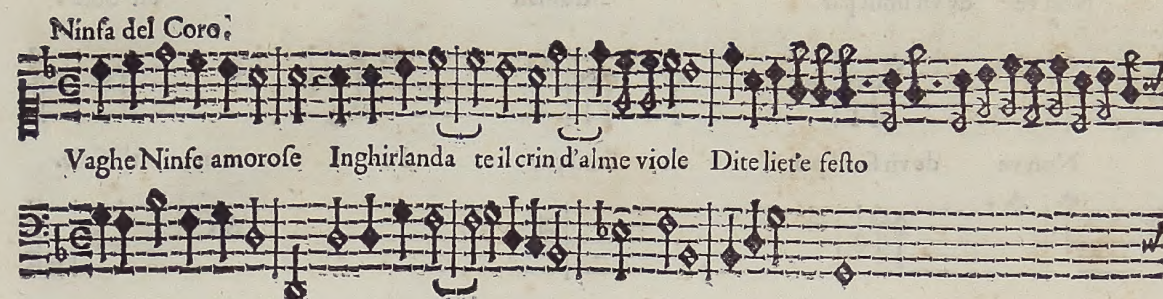 Ninfa del Coro.
Vaghe Ninfe amorose Inghirlanda te il crin d'alme viole Dite liet'e festo